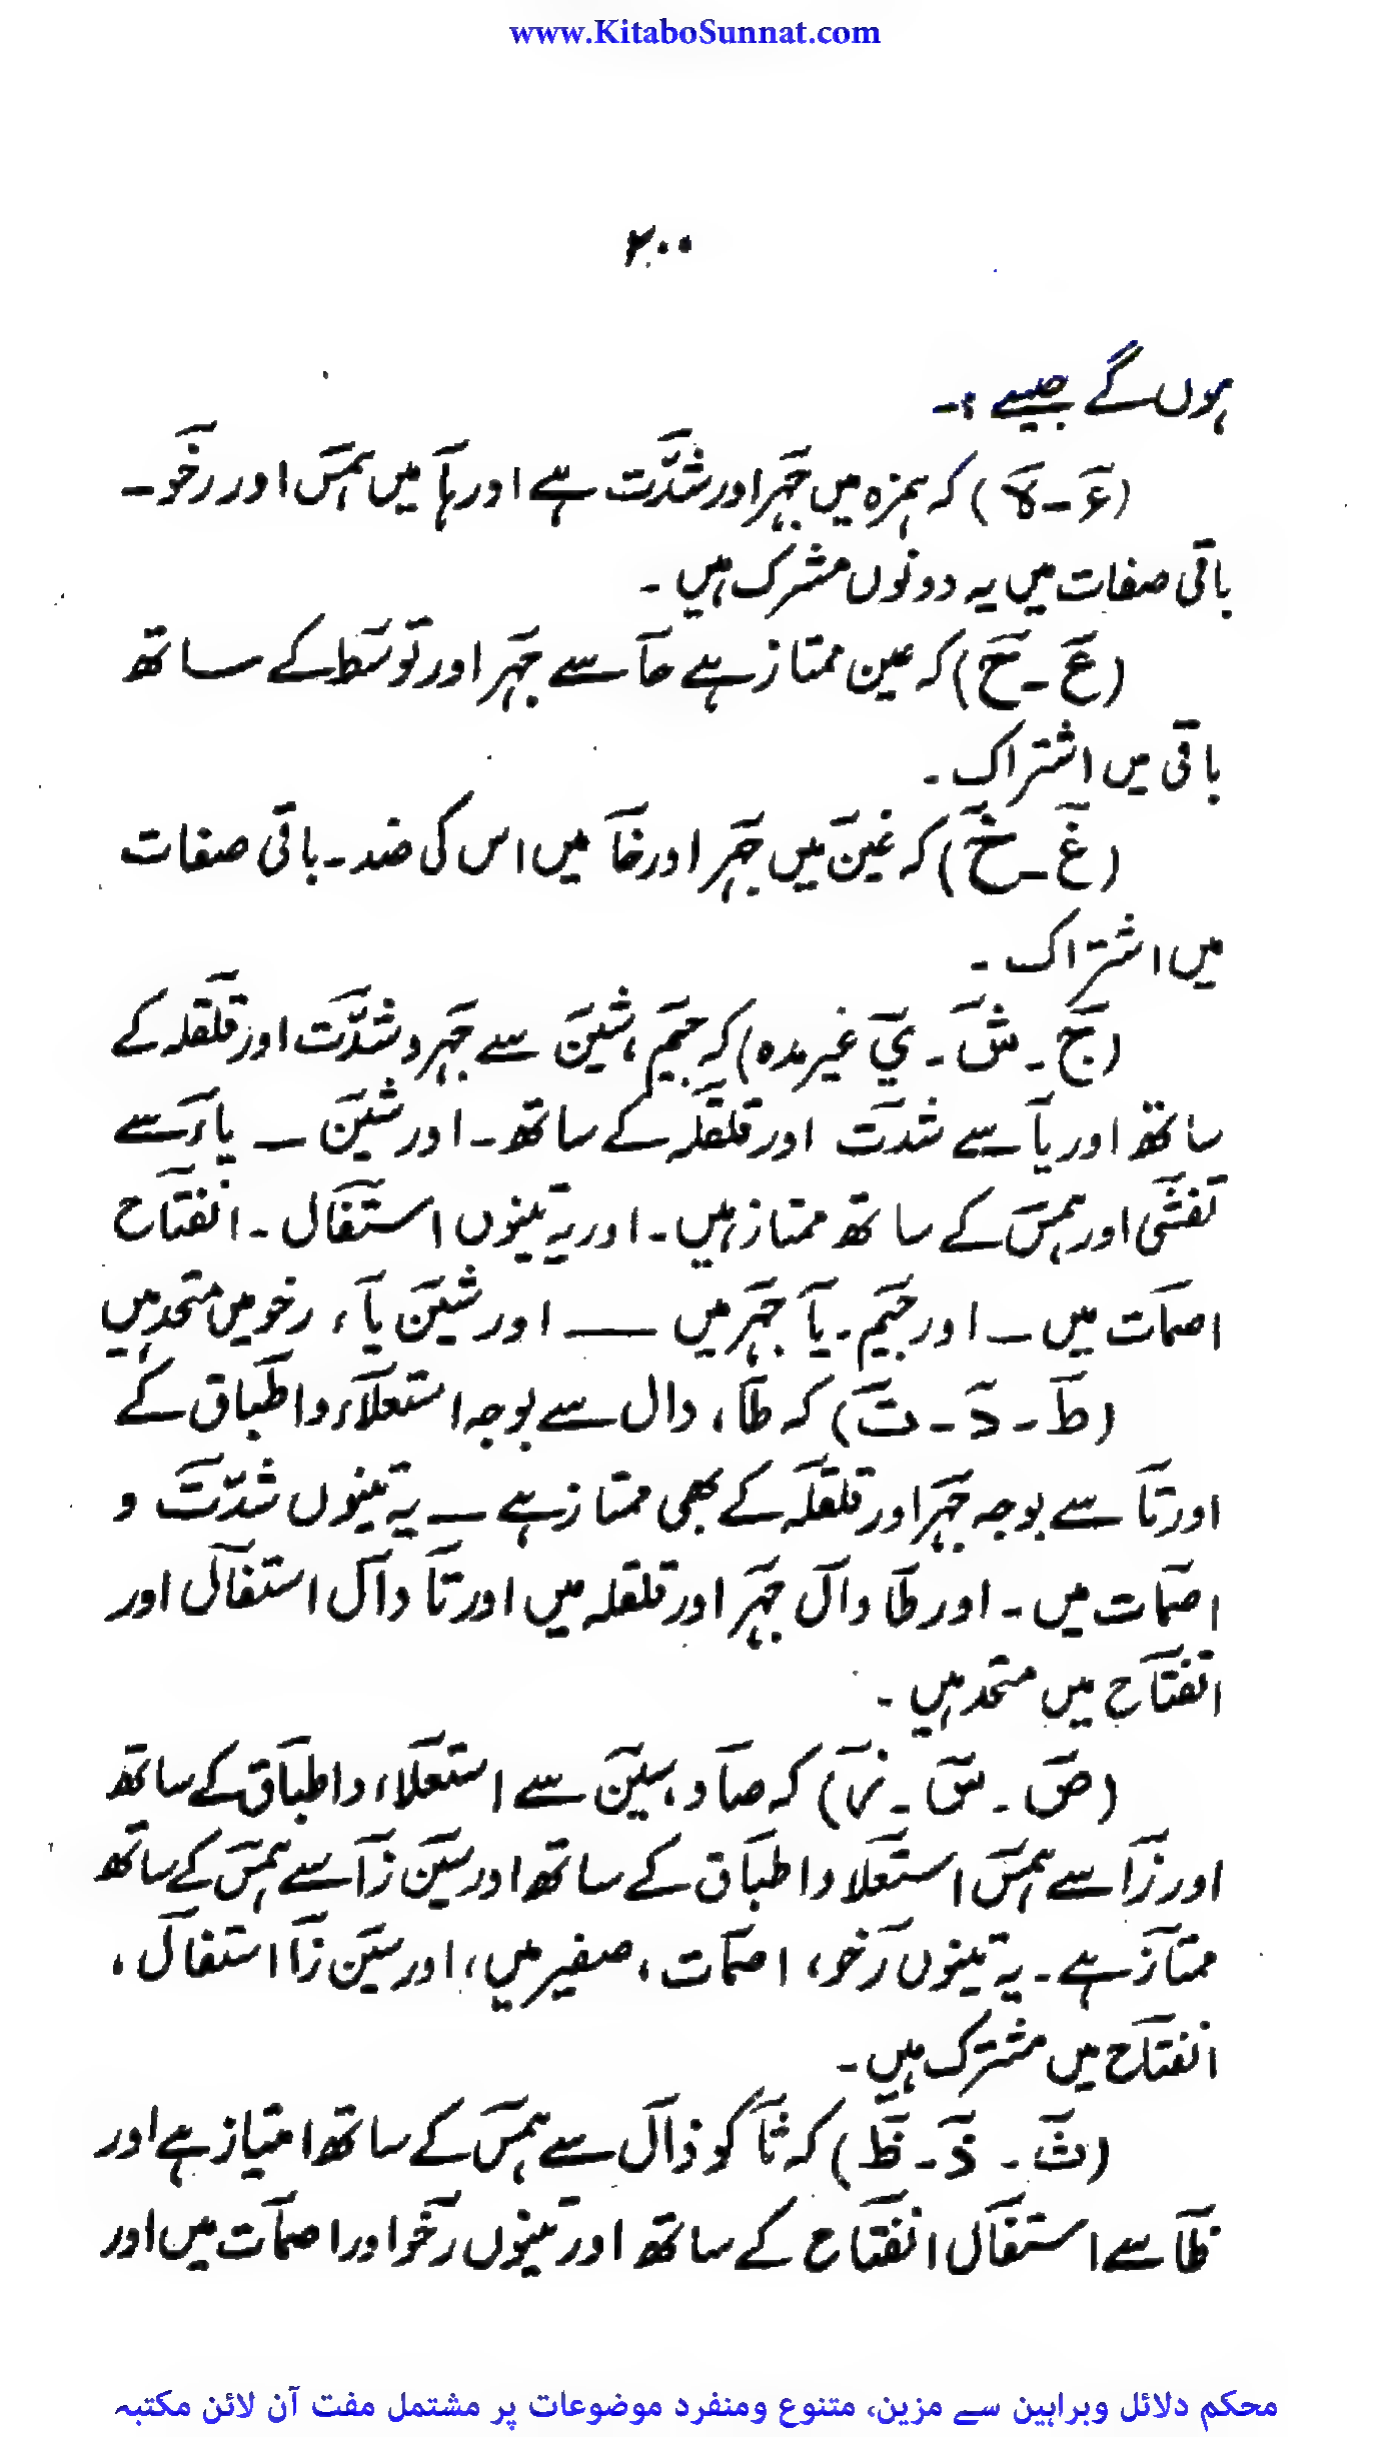 www.KitaboSunnat.com
۲۰۰
ہوں گے جیسے :-
(ءَ - ہَ) کہ ہمزہ میں جہر اور شدّت ہے اور ہا میں ہمس اور رخو ۔
باقی صفات میں یہ دونوں مشترک ہیں ۔
(عَ - حَ) کہ عین ممتاز ہے حا سے جہر اور توسّط کے ساتھ
باقی میں اشتراک ۔
(غَ - خَ) کہ غین میں جہر اور خا میں اس کی ضد ۔ باقی صفات
میں اشتراک ۔
(جَ - شَ - يَ غیر مدہ) کہ جیم ، شین سے جہر و شدّت اور قلقلہ کے
ساتھ اور یا سے شدت اور قلقلہ کے ساتھ ۔ اور شین — یاء سے
تفشّی اور ہمس کے ساتھ ممتاز ہیں ۔ اور یہ تینوں استفال ۔ انفتاح
اصمات میں — اور جیم ۔ یا جہر میں — اور شین یا ، رخو میں متحد ہیں
(طَ - دَ - تَ) کہ طا ، دال سے بوجہ استعلاء و اطباق کے
اور تا سے بوجہ جہر اور قلقلہ کے بھی ممتاز ہے — یہ تینوں شدّت و
اصمات میں ۔ اور طا دال جہر اور قلقلہ میں اور تا دال استفال اور
انفتاح میں متحد ہیں ۔
(صَ - سَ - زَ) کہ صاد ، سین سے استعلاء و اطباق کے ساتھ
اور زا سے ہمس استعلا و اطباق کے ساتھ اور سین زا سے ہمس کے ساتھ
ممتاز ہے ۔ یہ تینوں رخو ، اصمات ، صفیر میں ، اور سین زا استفال ،
انفتاح میں مشترک ہیں ۔
(ثَ - ذَ - ظَ) کہ ثا کو ذال سے ہمس کے ساتھ امتیاز ہے اور
ظا سے استفال انفتاح کے ساتھ اور تینوں رخو اور اصمات میں اور
محکم دلائل وبراہین سے مزین، متنوع ومنفرد موضوعات پر مشتمل مفت آن لائن مکتبہ